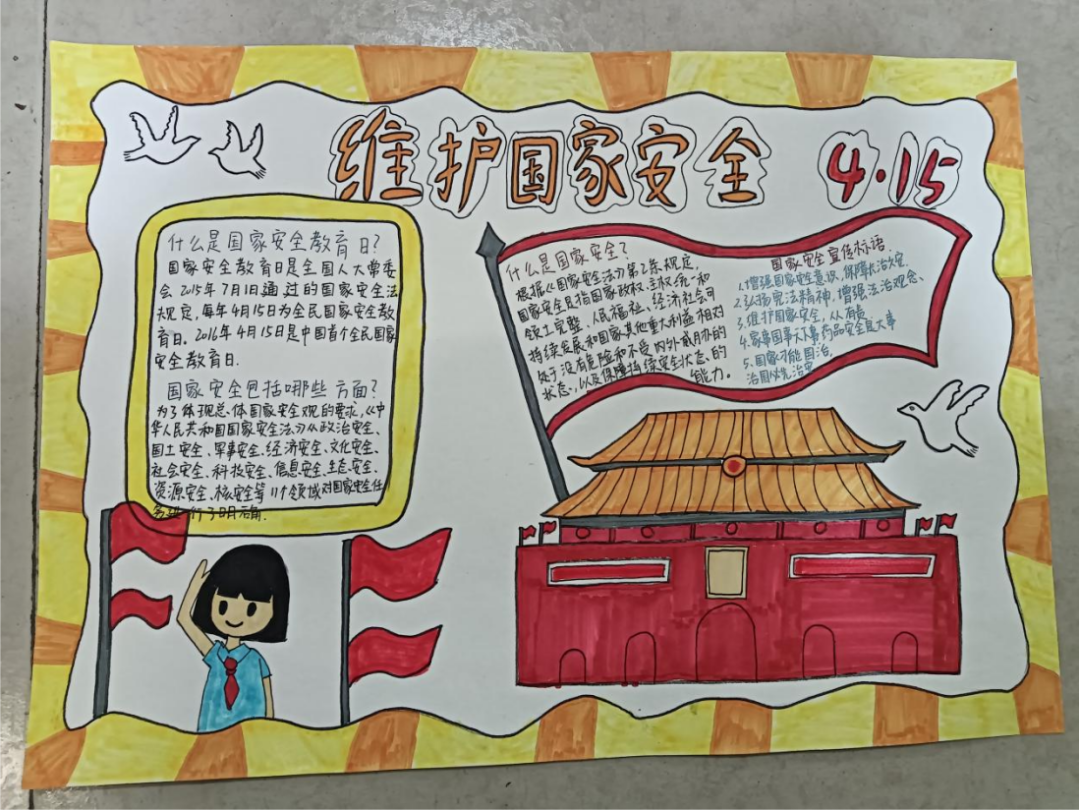 维护国家安全 4·15
什么是国家安全教育日?
国家安全教育日是全国人大常委
会2015年7月1日通过的国家安全法
规定,每年4月15日为全民国家安全教
育日。2016年4月15日是中国首个全民国家
安全教育日.
国家安全包括哪些方面?
为了体现总体国家安全观的要求,《中
华人民共和国国家安全法》从政治安全、
国土安全、军事安全、经济安全、文化安全、
社会安全、科技安全、信息安全、生态安全、
资源安全、核安全等11个领域对国家安全任
务进行了明确.
什么是国家安全?
根据《国家安全法》第2条规定,
国家安全是指国家政权、主权、统一和
领土完整、人民福祉、经济社会可
持续发展和国家其他重大利益相对
处于没有危险和不受内外威胁的
状态,以及保障持续安全状态的
能力。
国家安全宣传标语.
1.增强国家安全意识,保障长治久安.
2.弘扬宪法精神,增强法治观念、
3.维护国家安全,人人有责
4.家事国事天下事药品安全是大事
5.国家才能国治,
治国必先治安